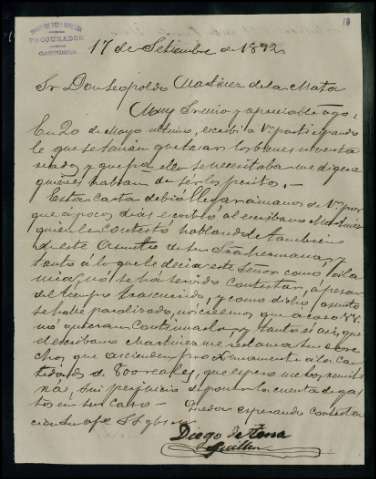 PROCURADOR
17 de Setiembre de 1892
Sr Don Leopoldo Martinez de la Mata
Muy Sr mio y apreciable ago:
En 20 de Mayo ultimo, escribi a V. participando
le que se tenian que tasar los bienes inventa
riados y que por ello se necesitaba me digera
quienes habian de ser los peritos. -
Esta carta debio llegar a manos de V. por
que a pocos dias escribió al escribano Martinez
quien le contesto hablandole tambien
de este asunto de su Sra hermana, y
tanto á lo que le decia este Señor como á la
mia, no se há servido contestar, a pesar
del tiempo trascurrido, y como dicho asunto
se halle paralizado, nos creemos que acaso VV.
no quieran continuarlo, y tanto es asi, que
el escribano Martinez me reclama sus dere
chos, que ascienden proximamente a la can
tidad de 800 reales, que espero me los remiti
rá, sin perjuicio de poner la cuenta de gas
tos en su caso -
Queda esperando contesta
cion su afo SS q b s m
Diego de
Guillen